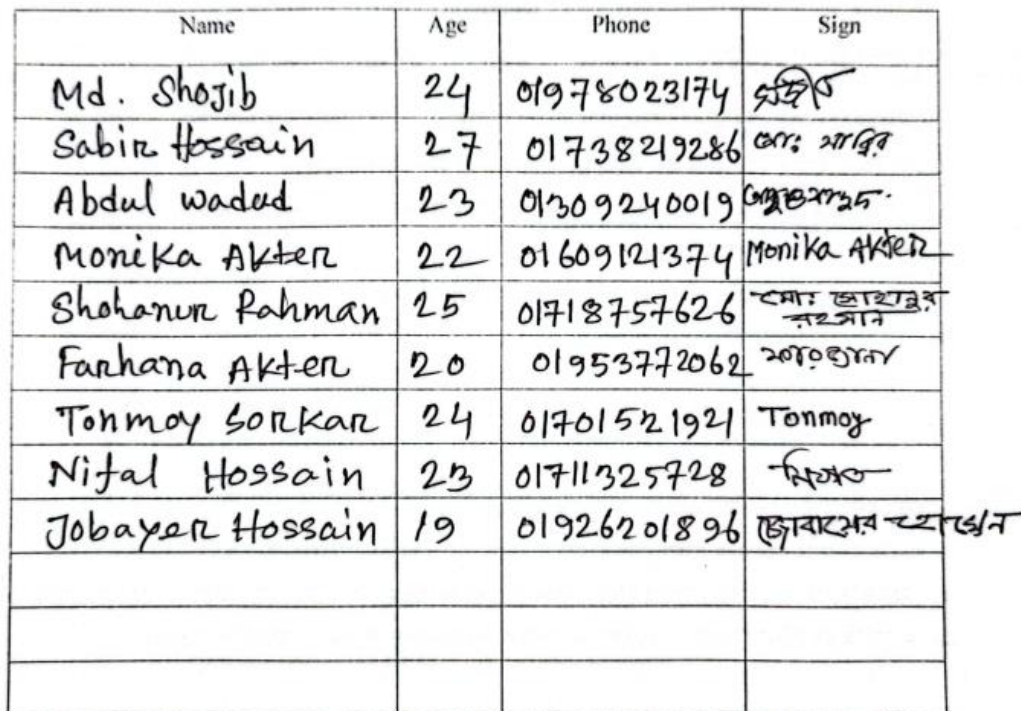 Name Age Phone Sign
Md. Shojib 24 01978023174 সজীব
Sabir Hossain 27 01738219286 মোঃ সাব্বির
Abdul wadud 23 01309240019
Monika Akter 22 01609121374 Monika Akter
Shohanur Rahman 25 01718757626 মোঃ সোহানুর রহমান
Farhana Akter 20 01953772062
Tonmoy Sorkar 24 01701521921 Tonmoy
Nifal Hossain 23 01711325728
Jobayer Hossain 19 01926201896 জোবায়ের হোসেন